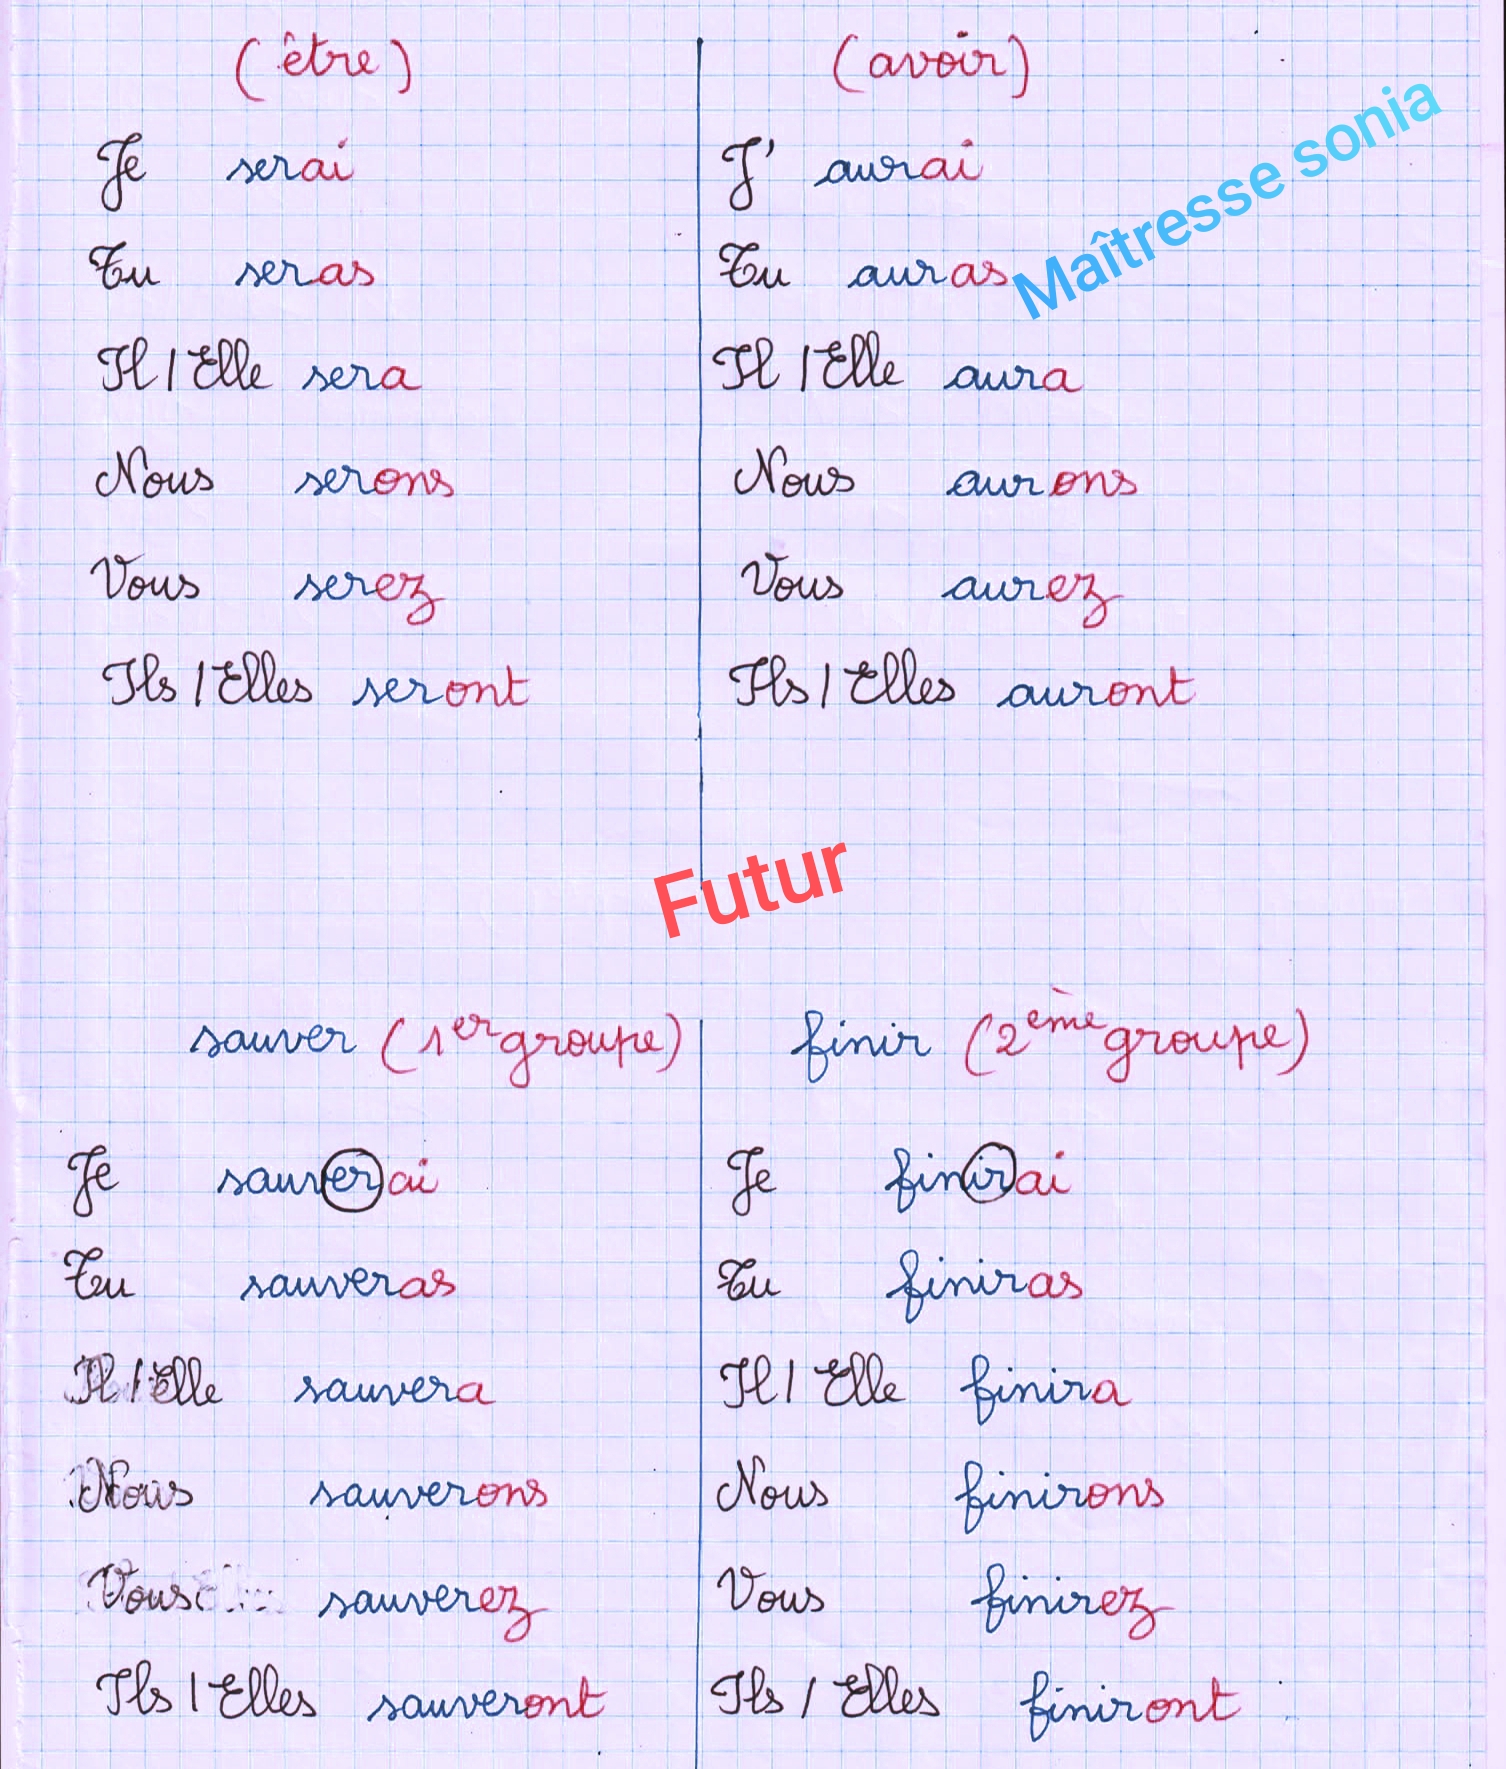 (être)
Je serai
Tu seras
Il / Elle sera
Nous serons
Vous serez
Ils / Elles seront
(avoir)
J' aurai
Tu auras
Il / Elle aura
Nous aurons
Vous aurez
Ils / Elles auront
Maîtresse sonia
Futur
sauver (1er groupe)
Je sauverai
Tu sauveras
Il / Elle sauvera
Nous sauverons
Vous sauverez
Ils / Elles sauveront
finir (2ème groupe)
Je finirai
Tu finiras
Il / Elle finira
Nous finirons
Vous finirez
Ils / Elles finiront